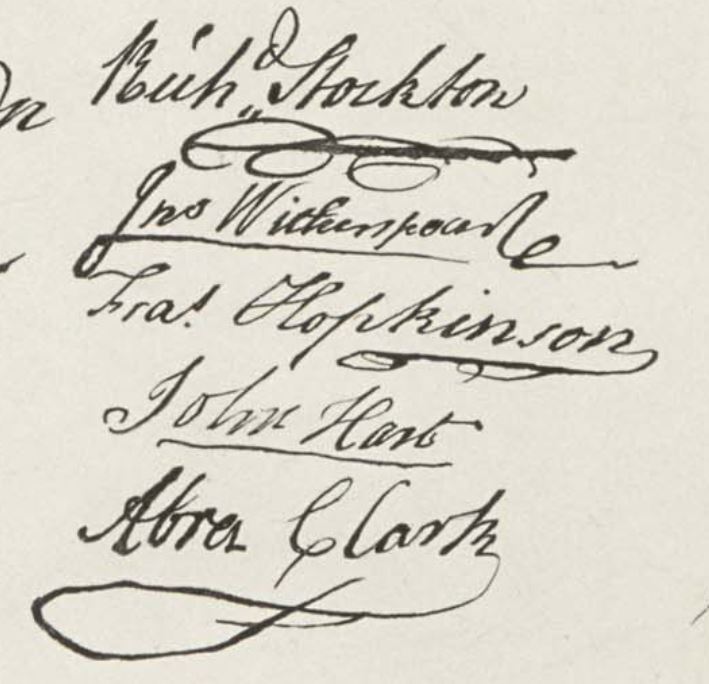 Richd. Stockton
Jno Witherspoon
Fras. Hopkinson
John Hart
Abra Clark